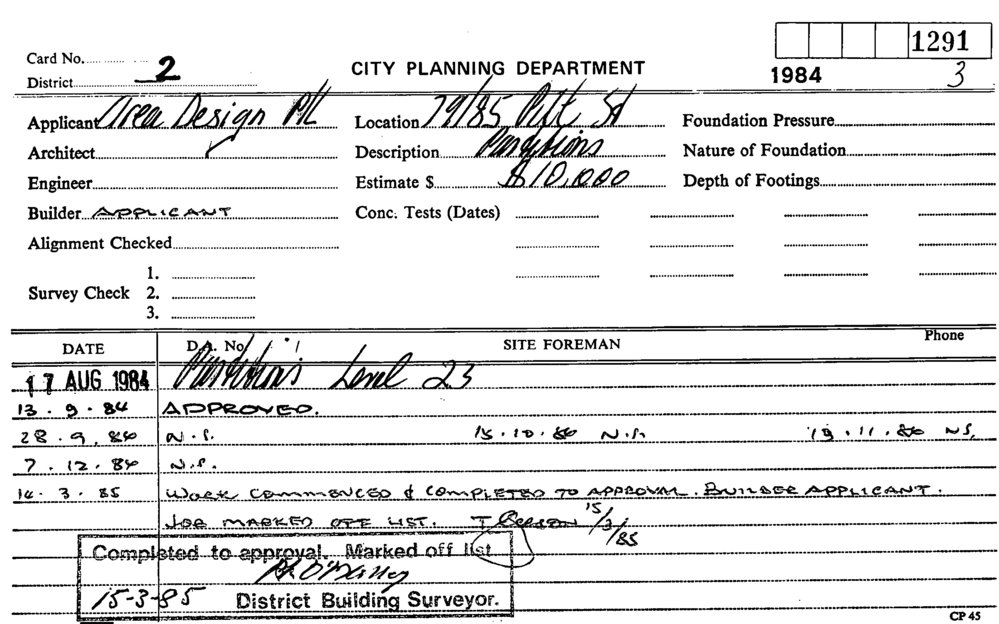 1291
Card No.
2
CITY PLANNING DEPARTMENT
1984
3
District
Applicant Area Design P/L
Location 79/85 Pitt St
Foundation Pressure
Architect
Description Partitions
Nature of Foundation
Engineer
Estimate $ $10,000
Depth of Footings
Builder APPLICANT
Conc. Tests (Dates)
Alignment Checked
1.
Survey Check 2.
3.
DATE D.A. No. SITE FOREMAN Phone
17 AUG 1984 Partitions Level 23
13.9.84 APPROVED.
28.9.84 N.S. 15.10.84 N.S. 19.11.84 NS,
7.12.84 N.S.
14.3.85 WORK COMMENCED & COMPLETED TO APPROVAL. BUILDER APPLICANT.
JOB MARKED OFF LIST. T 15/3/85
Completed to approval. Marked off list
15-3-85 District Building Surveyor.
CP 45